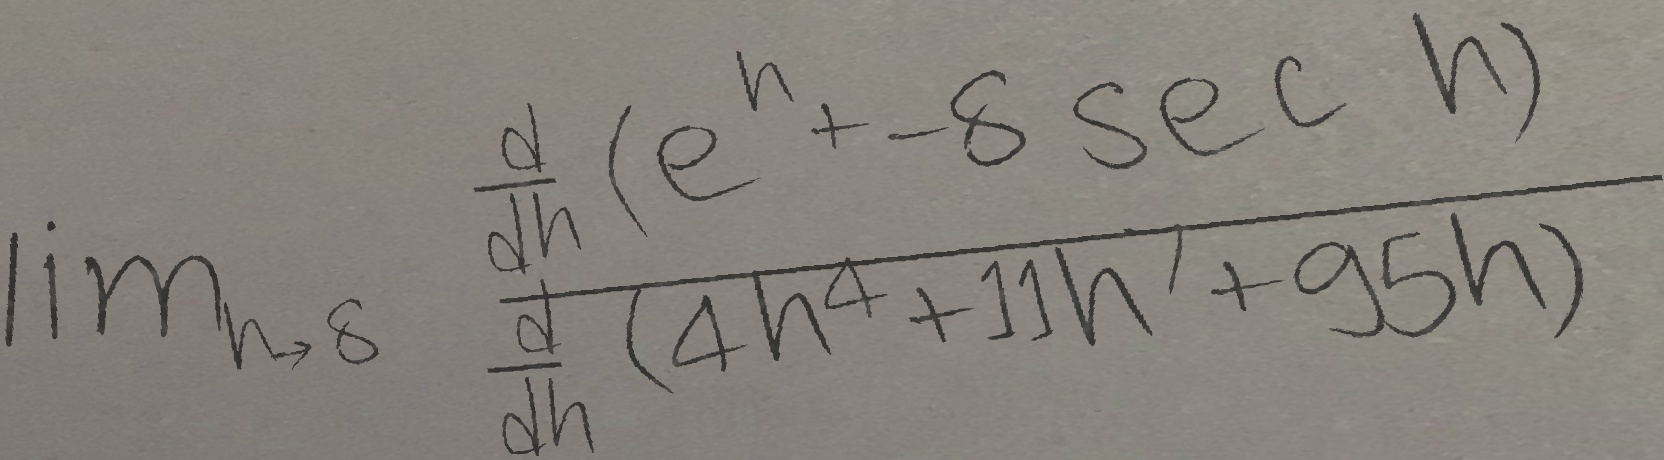 \lim_{h \to 8} \frac{\frac{d}{dh}(e^{h} + -8 \sec h)}{\frac{d}{dh}(4h^{4} + 11h^{1} + 95h)}